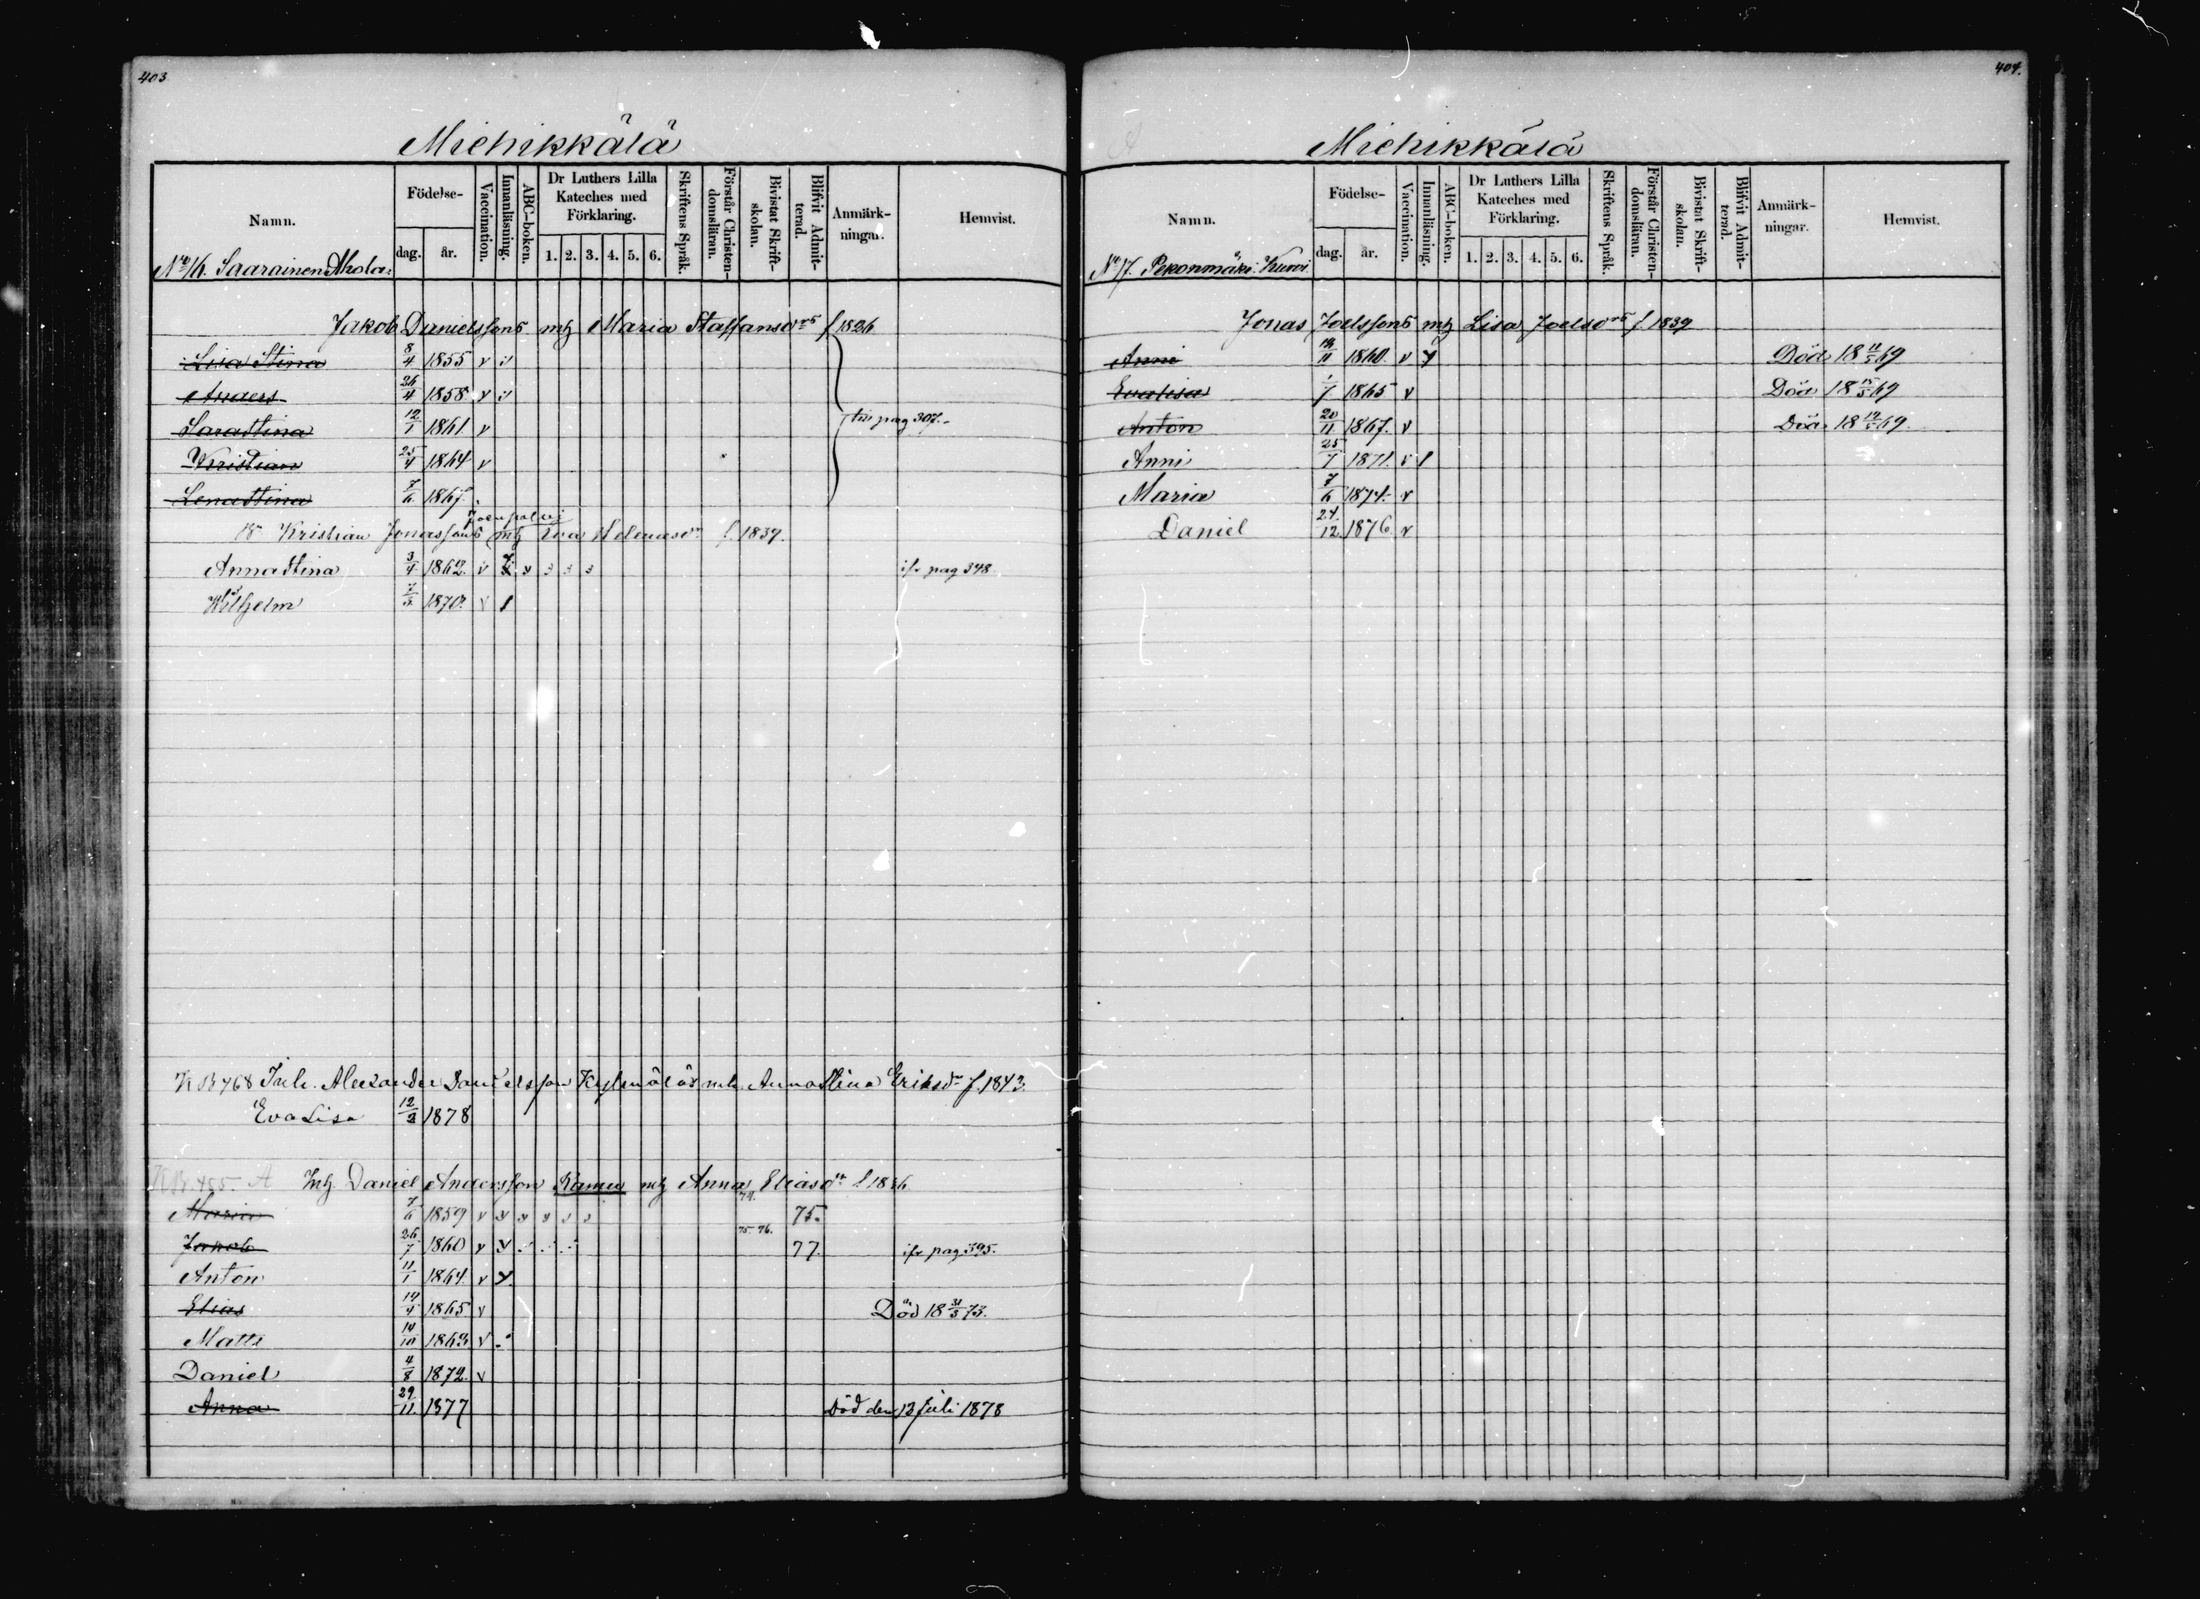 403
Miehikkälä
Namn. Födelse- dag. år. Vaccination. Innanläsning. ABC-boken. Dr Luthers Lilla Kateches med Förklaring. 1. 2. 3. 4. 5. 6. Skriftens Språk. Förstår Christen-domsläran. Bivistat Skrift-skolan. Blifvit Admit-terad. Anmärk-ningar. Hemvist.
No 16. Saarainen Ahola
Jakob Danielssons mh Maria Staffansdrs f 1826
Lisa Stina 8/4 1855 v
Anders 26/4 1858 v
Sarastina 12/1 1861 v till pag 307.
Kristian 25/4 1864 v
Lenastina 7/6 1867.
Kristian Jonassons mh Eva Helenasdr f. 1839.
Annastina 3/4 1862. v ifr pag 348
Wilhelm 7/3 1870. v 1
KB 768 Inh. Alexander Danielsson Kylmälä mh. Annastina Eriksdr f. 1843.
Eva Lisa 12/3 1878
KB. 455. A Inh. Daniel Andersson Ramu mh Anna Eliasdr f 1836
Maria 7/6 1859 v 74. 75.
Jakob 26/7 1860 v 75. 76. 77. ifr pag 395.
Anton 11/1 1864. v
Elias 14/4 1865. v Död 18 31/3 73.
Matts 14/10 1863 v
Daniel 4/8 1872. v
Anna 29/11 1877 Död den 13 Juli 1878
404.
Miehikkälä
Namn. Födelse- dag. år. Vaccination. Innanläsning. ABC-boken. Dr Luthers Lilla Kateches med Förklaring. 1. 2. 3. 4. 5. 6. Skriftens Språk. Förstår Christen-domsläran. Bivistat Skrift-skolan. Blifvit Admit-terad. Anmärk-ningar. Hemvist.
No 17. Pekonmäki Kurvi
Jonas Joelssons mh Lisa Joelsdrs f 1839
Anni 1860. v Död 18 11/5 69
Evalisa 1/7 1865 v Död 18 15/5 69
Anton 20/11 1867. v Död 18 69.
Anni 25/7 1871. v 1
Maria 7/6 1874. v
Daniel 24/12 1876. v